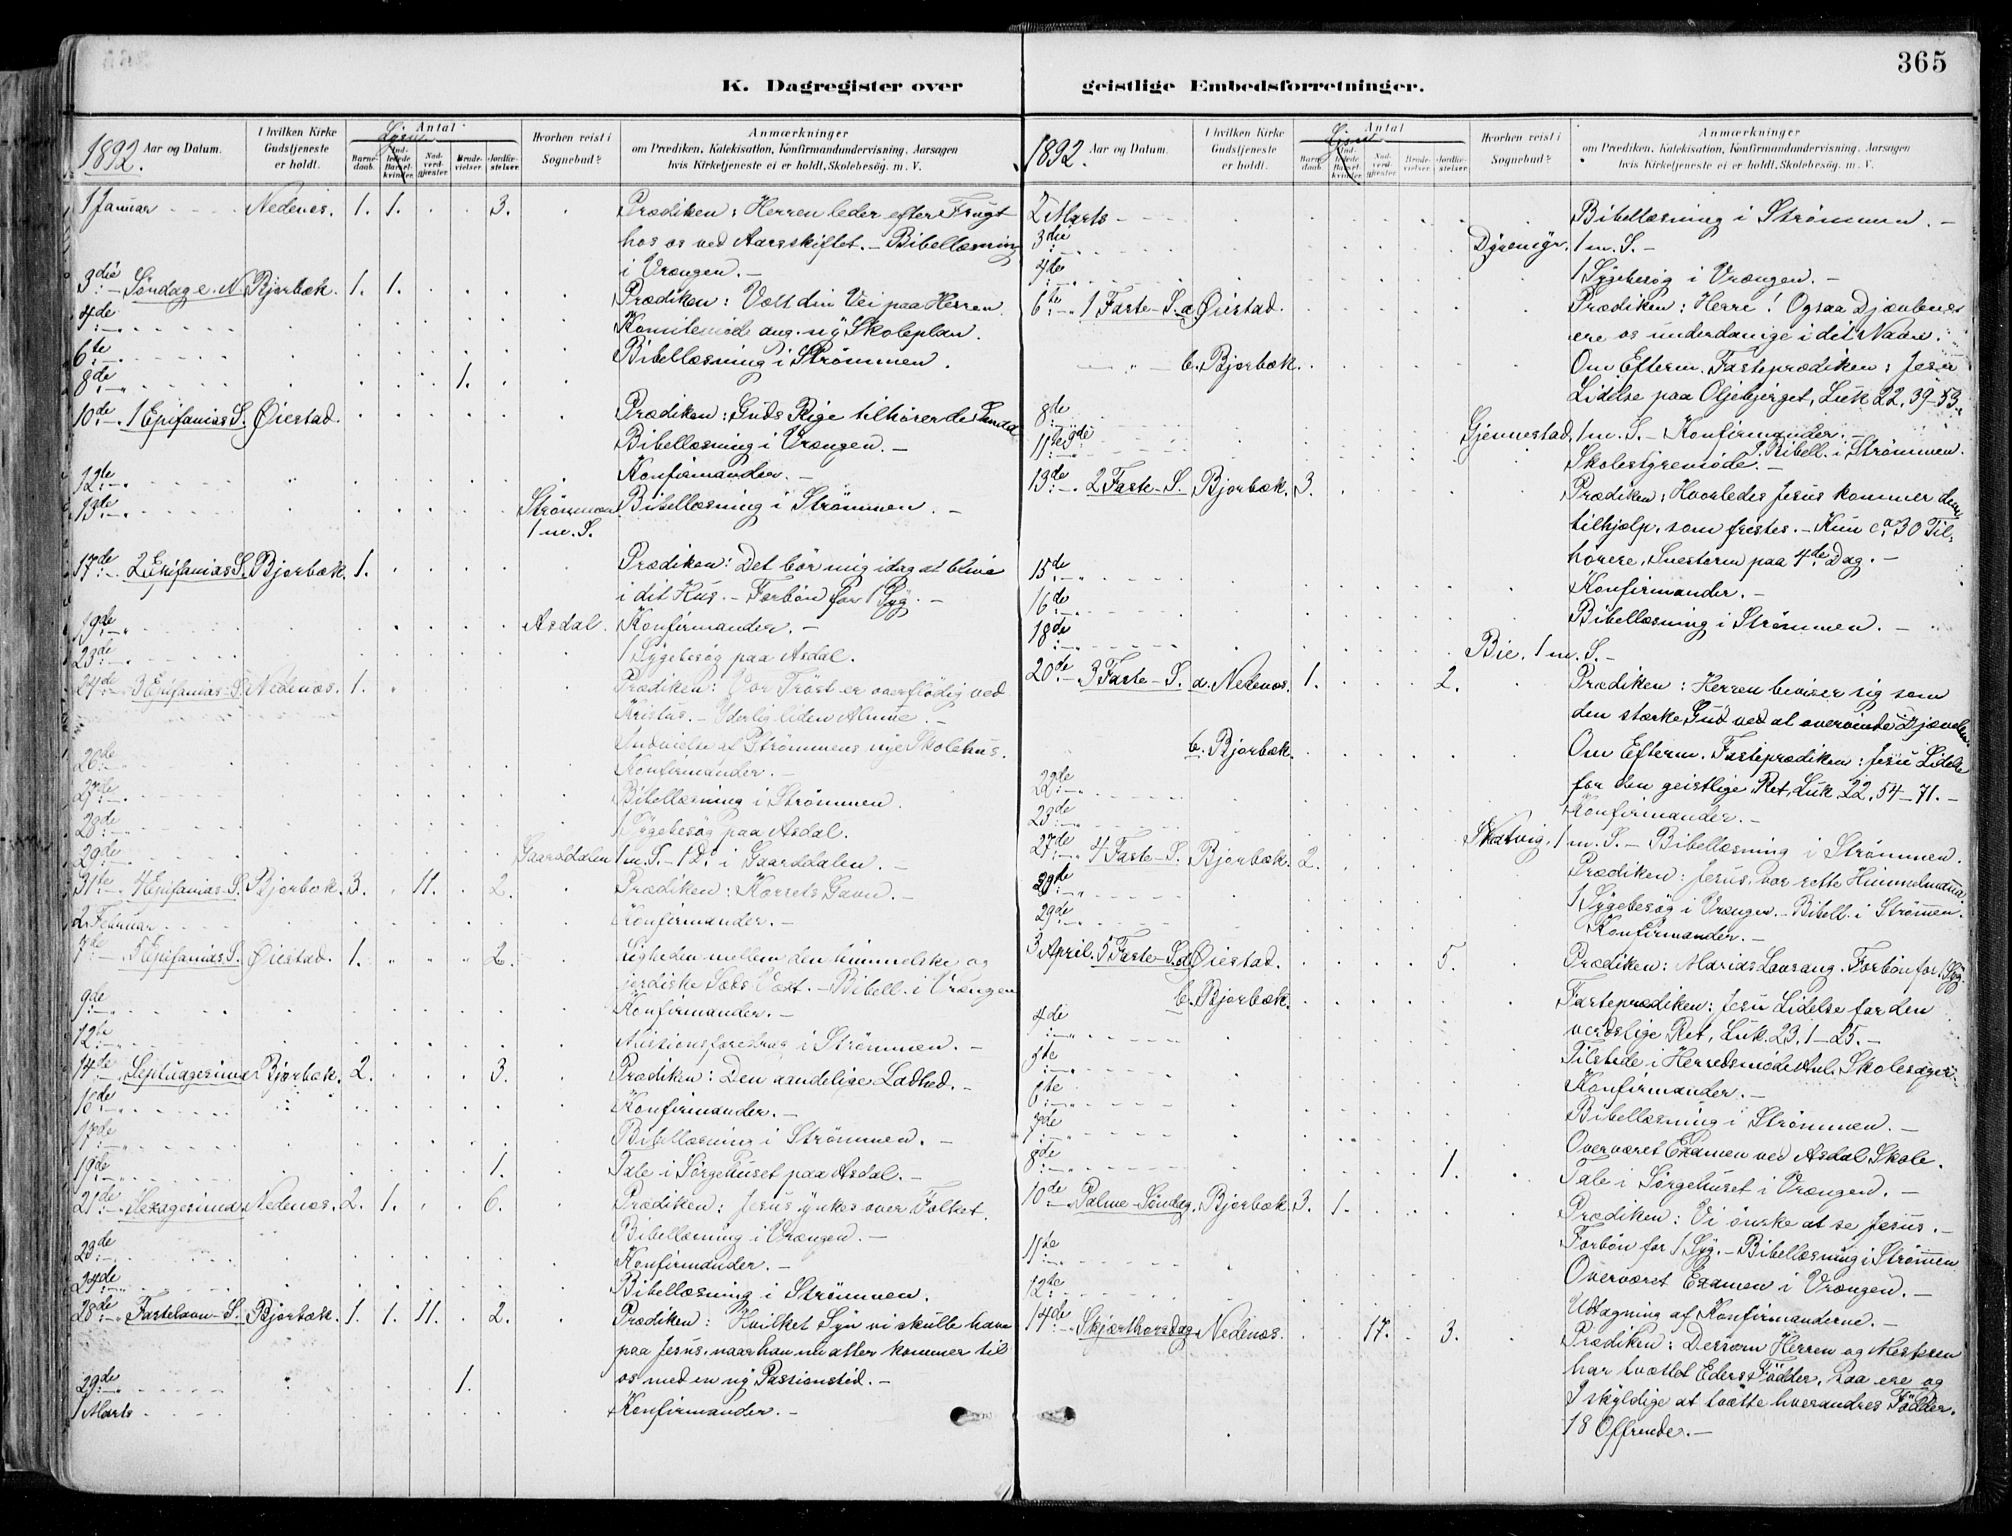 365
K. Dagregister over
geistlige Embedsforretninger.
1892. Aar og Datum.
I hvilken Kirke Gudstjeneste er holdt.
Antal
Barnedaab.
Indledede Barselkvinder.
Nadverdgjester.
Brudevielser.
Jordfæstelser.
Hvorhen reist i Sognebud?
Anmærkninger
om Prædiken, Katekisation, Konfirmandundervisning. Aarsagen
hvis Kirketjeneste ei er holdt. Skolebesøg. m. V.
1 Januar Nedenes. 1. 1. 3. Prædiken: Herren leder efter Frugt
hos os ved Aarsskiftet. – Bibellæsning
i Vrængen. –
3die Søndag e. N. Bjorbæk. 1. 1. Prædiken: Vælt din Vei paa Herren.
4de Komitemøde ang. ny Skoleplan.
6te Bibellæsning i Strømmen.
8de 1.
10de 1 Epifanias S. Øiestad. Prædiken: Guds Rige tilhører de Smaa
Bibellæsning i Vrængen. –
12te Konfirmander. –
13te Strømmen Bibellæsning i Strømmen. –
1 m. S.
17de 2 Epifanias S. Bjorbæk. 1. Prædiken: Det bør mig idag at blive
i dit Hus. – Forbøn for 1 Syg. –
19de Asdal. Konfirmander. –
23de 1 Sygebesøg paa Asdal.
24de 3 Epifanias-S. Nedenæs. 1. Prædiken: Vor Trøst er overflødig ved
Kristus. – Yderlig liden Almue. –
26de Indvielse af Strømmens nye Skolehus.
Konfirmander. –
27de Bibellæsning i Strømmen.
28de 1 Sygebesøg paa Asdal.
29de Gaarddalen 1 m. S. – 1 D. i Gaarddalen. –
31te 4 Epifanias-S. Bjorbæk. 3. 11. 2. Prædiken: Korsets Gavn. –
2 Februar Konfirmander. –
7de 5 Epifanias S. Øiestad. 1. 2. Ligheden mellem den himmelske og
jordiske Sæds Væxt. – Bibell. i Vrængen
9de Konfirmander. –
12te Missionsforedrag i Strømmen. –
14de Septuagesima Bjorbæk. 2. 3. Prædiken: Den aandelige Ladhed. –
16de Konfirmander. –
17de Bibellæsning i Strømmen. –
19de 1. Tale i Sørgehuset paa Asdal. –
21de Sexagesima Nedenæs. 2. 1. 6. Prædiken: Jesus ynkes over Folket.
Bibellæsning i Vrængen. –
23de Konfirmander. –
24de Bibellæsning i Strømmen.
28de Fastelavn-S. Bjorbæk. 1. 1. 11. 2. Prædiken: Hvilket Syn vi skulle have
paa Jesus, naar han nu atter kommer til
29de 1. os med en ny Passionstid. –
1 Marts Konfirmander. –
1892. Aar og Datum.
I hvilken Kirke Gudstjeneste er holdt.
Antal
Barnedaab.
Indledede Barselkvinder.
Nadverdgjester.
Brudevielser.
Jordfæstelser.
Hvorhen reist i Sognebud?
Anmærkninger
om Prædiken, Katekisation, Konfirmandundervisning. Aarsagen
hvis Kirketjeneste ei er holdt. Skolebesøg. m. V.
2 Marts Bibellæsning i Strømmen. –
3die Dyremyr. 1 m. S. –
4de 1 Sygebesøg i Vrængen. –
6te 1 Faste-S. a. Øiestad. Prædiken: Herre! Ogsaa Djævlene
ere os underdanige i dit Navn.
b. Bjorbæk. Om Efterm. Fasteprædiken: Jesu
Lidelse paa Oljebjerget, Luk 22, 39–53.
8de Gjennestad, 1 m. S. – Konfirmander. –
Bibell. i Strømmen.
11te Skolestyremøde. –
13de 2 Faste-S. Bjorbæk. 3. Prædiken: Hvorledes Jesus kommer dem
tilhjælp, som fristes. – Kun ca 30 Til-
hørere, Snestorm paa 4de Dag. –
15de Konfirmander. –
16de Bibellæsning i Strømmen. –
18de Bie. 1 m. S. –
20de 3 Faste-S. a. Nedenæs. 1. 2. Prædiken: Herren beviser sig som
den stærke Gud ved at overvinde Djævelen.
b. Bjorbæk. Om Efterm. Fasteprædiken: Jesu Lidelse
for den geistlige Ret, Luk 22, 54–71. –
22de Konfirmander. –
23de 1 m. S. – Bibellæsning i Strømmen.
27de 4 Faste-S. Bjorbæk. 2. Prædiken: Jesus, vor rette Himmelmanna.
1 Sygebesøg i Vrængen. – Bibell. i Strømmen.
29de Konfirmander. –
3 April. 5 Faste-S. a. Øiestad. 5. Prædiken: Marias Lovsang. Forbøn for 1 Syg.
b. Bjorbæk. Fasteprædiken: Jesu Lidelse for den
verdslige Ret, Luk. 23, 1–25. –
4de Tilstede i Herredsmøde Anl. Skolesager.
5te Konfirmander. –
6te Bibellæsning i Strømmen. –
7de Overværet Examen ved Asdal Skole.
8de 1. Tale i Sørgehuset i Vrængen. –
10de Palme-Søndag. Bjorbæk. 3. 1. Prædiken: Vi ønske at se Jesus. –
Forbøn for 1 Syg. – Bibellæsning i Strømmen
11te Overværet Examen i Vrængen. –
12te Udtagning af Konfirmanderne. –
14de Skjærthorsdag Nedenæs. 17. 3. Prædiken: Dersom Herren og Mesteren
har tvættet Eders Fødder, saa ere og
I skyldige at tvætte hverandres Fødder.
18 Offrende. –